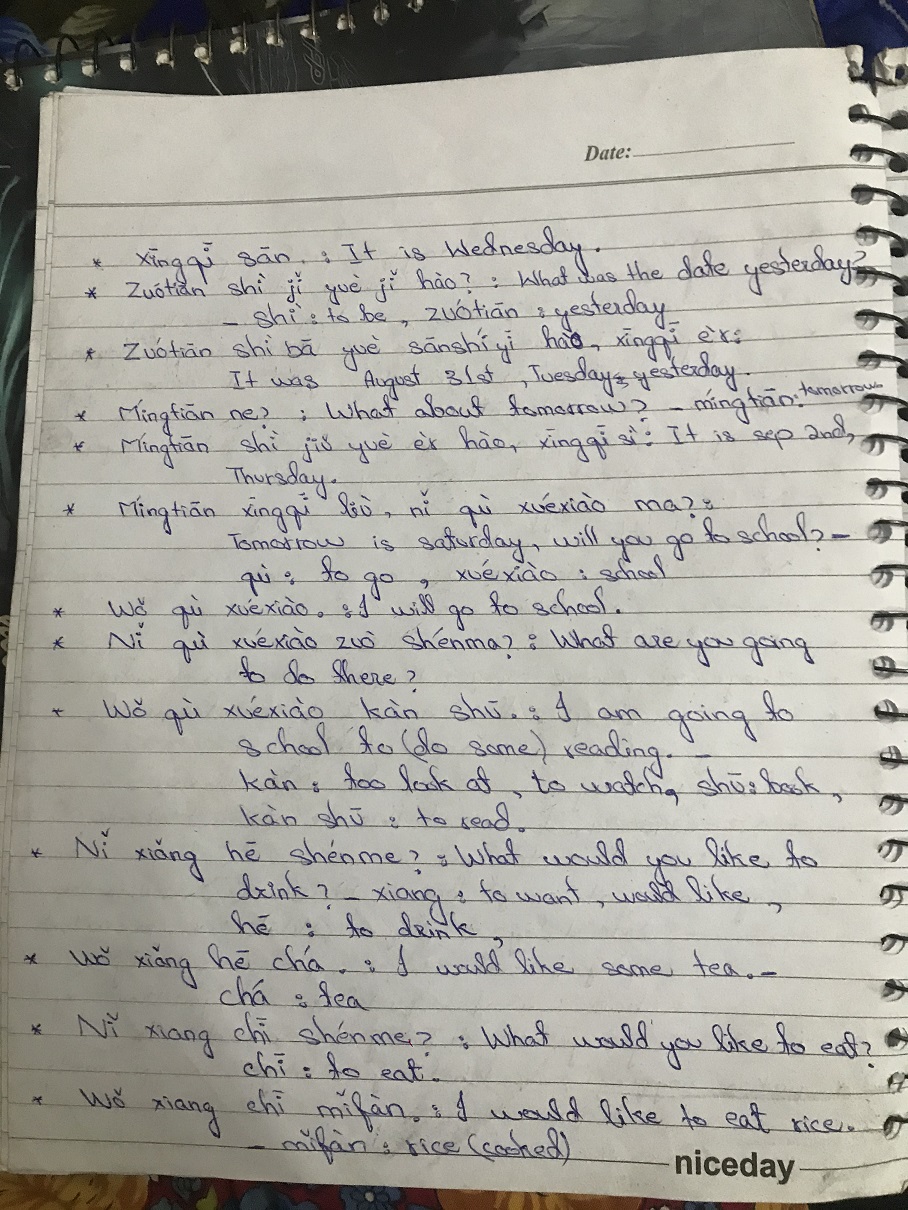 Date:
* Xīngqī sān. : It is Wednesday.
* Zuótiān shì jǐ yuè jǐ hào? : What was the date yesterday?
– shì : to be, zuótiān : yesterday
* Zuótiān shì bā yuè sānshíyī hào, xīngqī èr :
It was August 31st, Tuesday, yesterday.
* Míngtiān ne? : What about tomorrow? – míngtiān : tomorrow
* Míngtiān shì jiǔ yuè èr hào, xīngqī sì : It is sep 2nd,
Thursday.
* Míngtiān xīngqī liù, nǐ qù xuéxiào ma? :
Tomorrow is saturday, will you go to school? –
qù : to go, xuéxiào : school
* Wǒ qù xuéxiào. : I will go to school.
* Nǐ qù xuéxiào zuò shénma? : What are you going
to do there?
* Wǒ qù xuéxiào kàn shū. : I am going to
school to (do some) reading. –
kàn : too look at, to watch, shū : book,
kàn shū : to read.
* Nǐ xiǎng hē shénme? : What would you like to
drink? – xiang : to want, would like,
hē : to drink,
* Wǒ xiǎng hē chá. : I would like some tea. –
chá : tea
* Nǐ xiang chī shénme? : What would you like to eat?
chī : to eat.
* Wǒ xiang chī mǐfàn. : I would like to eat rice.
– mǐfàn : rice (cooked)
niceday